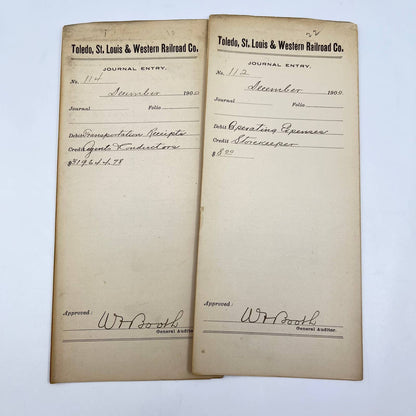 Toledo, St. Louis & Western Railroad Co.
JOURNAL ENTRY.
No. 114
December 1900
Journal Folio
Debit Transportation Receipts
Credit Agents & Conductors
$819644.78
Approved:
W F Booth
General Auditor.
22
Toledo, St. Louis & Western Railroad Co.
JOURNAL ENTRY.
No. 112
December 1900
Journal Folio
Debit Operating Expenses
Credit Storekeeper
$8.00
Approved:
W F Booth
General Auditor.